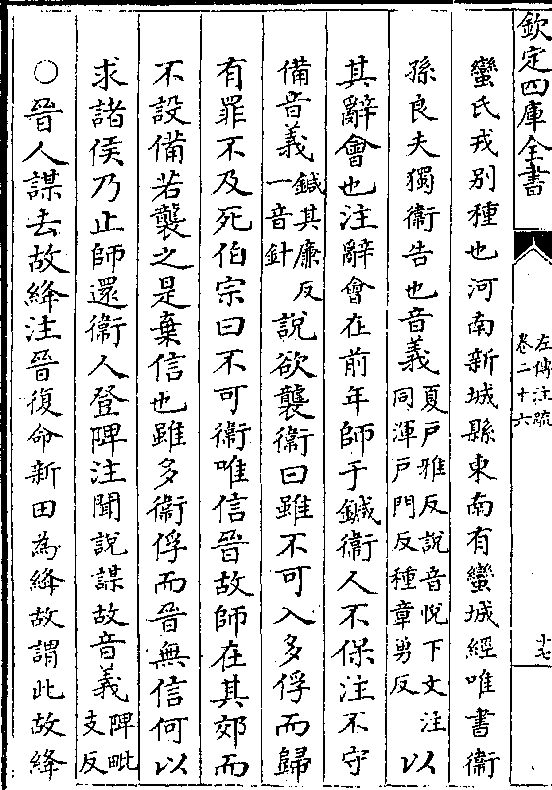 欽定四庫全書
左傳注疏
卷二十六
十七
蠻氏戎别種也河南新城縣東南有蠻城經唯書衞
孫良夫獨衞告也音義夏戶雅反說音悅下文注同渾戶門反種章勇反以
其辭會也注辭會在前年師于鍼衞人不保注不守
備音義鍼其廉反一音針說欲襲衞曰雖不可入多俘而歸
有罪不及死伯宗曰不可衞唯信晉故師在其郊而
不設備若襲之是棄信也雖多衞俘而晉無信何以
求諸侯乃止師還衞人登陴注聞說謀故音義陴毗支反
○晉人謀去故絳注晉復命新田為絳故謂此故絳